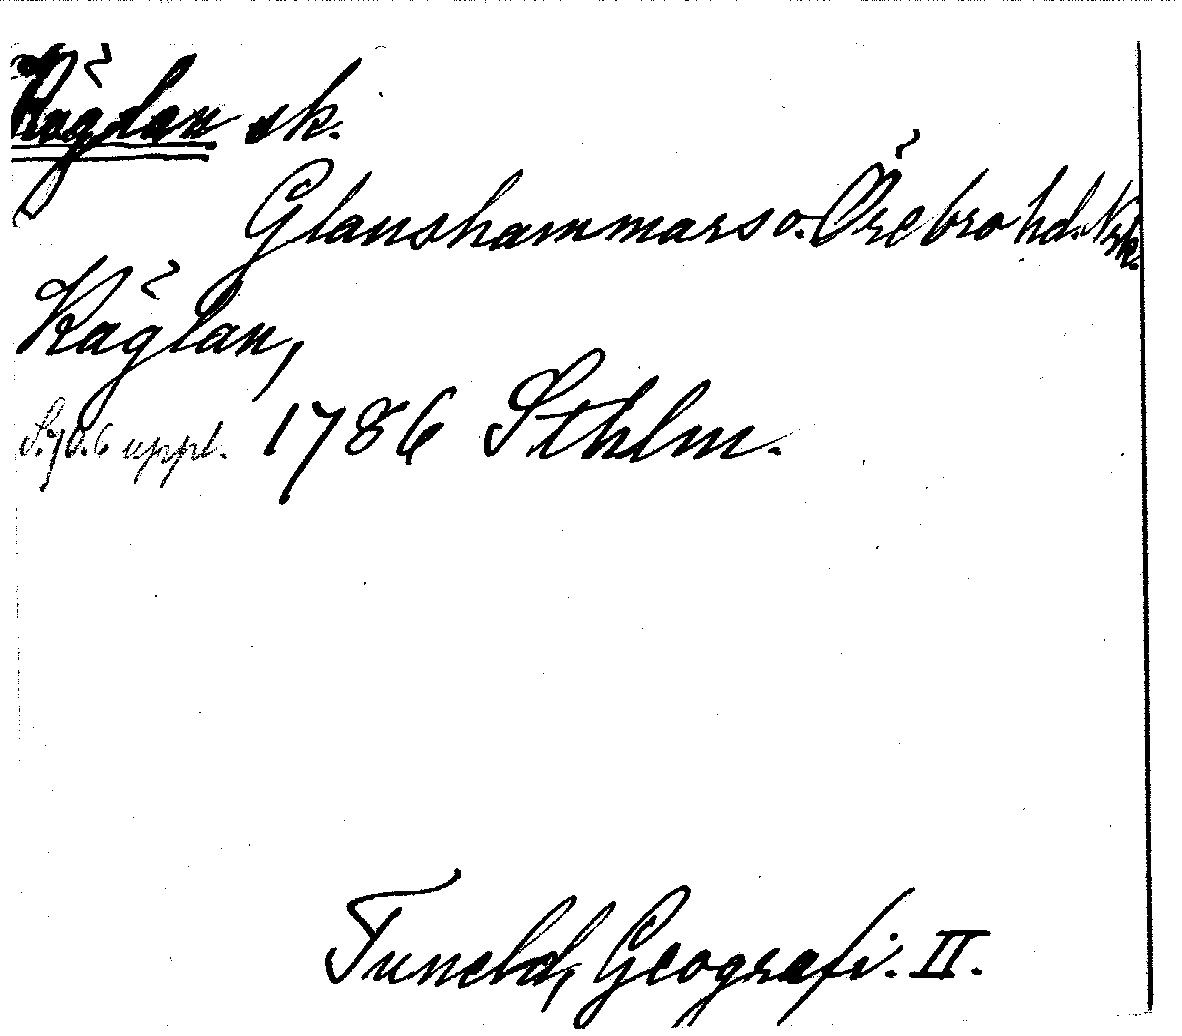 Käglan sk.
Glanshammars o. Örebro hd. Nrk.
Käglan,
S. 70. 6 uppl. 1786 Sthlm.
Tuneld, Geografi. II.